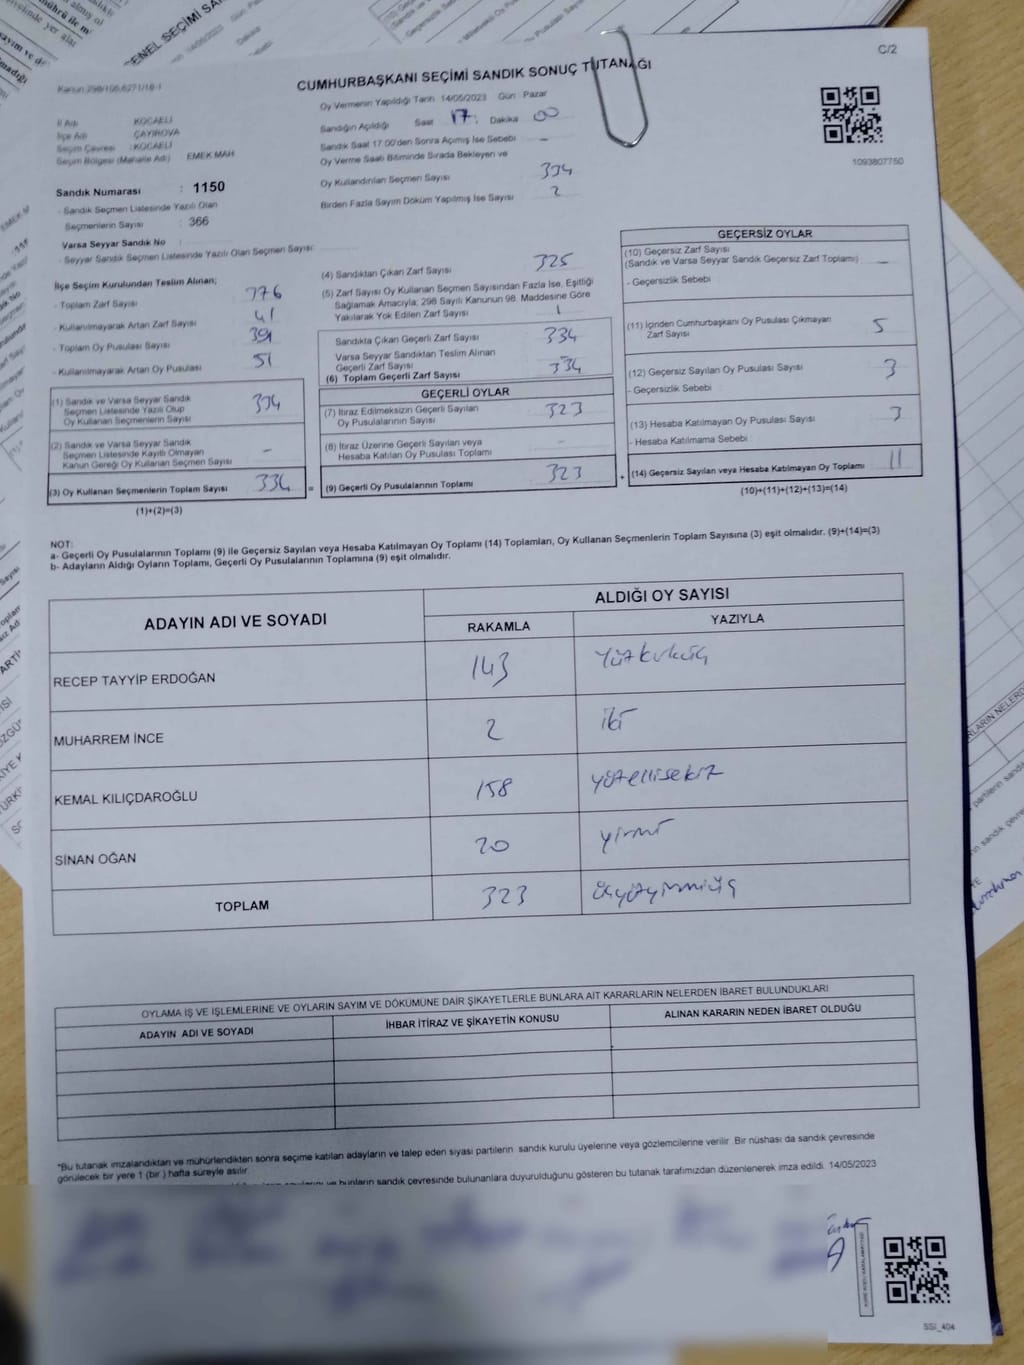 C/2
CUMHURBAŞKANI SEÇİMİ SANDIK SONUÇ TUTANAĞI
Oy Vermenin Yapıldığı Tarih 14/05/2023 Gün : Pazar
Sandığın Açıldığı Saat 17: Dakika 00
Sandık Saat 17.00'den Sonra Açılmış İse Sebebi –
Oy Verme Saati Bitiminde Sırada Bekleyen ve
Oy Kullandırılan Seçmen Sayısı 334
Birden Fazla Sayım Döküm Yapılmış İse Sayısı 2
1093807750
İl Adı : KOCAELİ
İlçe Adı : ÇAYIROVA
Seçim Çevresi : KOCAELİ
Seçim Bölgesi (Mahalle Adı) EMEK MAH
Sandık Numarası : 1150
- Sandık Seçmen Listesinde Yazılı Olan
Seçmenlerin Sayısı : 366
Varsa Seyyar Sandık No :
- Seyyar Sandık Seçmen Listesinde Yazılı Olan Seçmen Sayısı:
İlçe Seçim Kurulundan Teslim Alınan;
- Toplam Zarf Sayısı 376
- Kullanılmayarak Artan Zarf Sayısı 41
- Toplam Oy Pusulası Sayısı 391
- Kullanılmayarak Artan Oy Pusulası 51
(1) Sandık ve Varsa Seyyar Sandık
Seçmen Listesinde Yazılı Olup
Oy Kullanan Seçmenlerin Sayısı 334
(2) Sandık ve Varsa Seyyar Sandık
Seçmen Listesinde Kayıtlı Olmayan
Kanun Gereği Oy Kullanan Seçmen Sayısı –
(3) Oy Kullanan Seçmenlerin Toplam Sayısı 334 =
(1)+(2)=(3)
(4) Sandıktan Çıkan Zarf Sayısı 325
(5) Zarf Sayısı Oy Kullanan Seçmen Sayısından Fazla İse, Eşitliği
Sağlamak Amacıyla; 298 Sayılı Kanunun 98. Maddesine Göre
Yakılarak Yok Edilen Zarf Sayısı 1
Sandıkta Çıkan Geçerli Zarf Sayısı 334
Varsa Seyyar Sandıktan Teslim Alınan
Geçerli Zarf Sayısı 334
(6) Toplam Geçerli Zarf Sayısı
GEÇERLİ OYLAR
(7) İtiraz Edilmeksizin Geçerli Sayılan
Oy Pusulalarının Sayısı 323
(8) İtiraz Üzerine Geçerli Sayılan veya
Hesaba Katılan Oy Pusulası Toplamı –
(9) Geçerli Oy Pusulalarının Toplamı 323 +
GEÇERSİZ OYLAR
(10) Geçersiz Zarf Sayısı
(Sandık ve Varsa Seyyar Sandık Geçersiz Zarf Toplamı) –
- Geçersizlik Sebebi
(11) İçinden Cumhurbaşkanı Oy Pusulası Çıkmayan
Zarf Sayısı 5
(12) Geçersiz Sayılan Oy Pusulası Sayısı 3
- Geçersizlik Sebebi
(13) Hesaba Katılmayan Oy Pusulası Sayısı 3
- Hesaba Katılmama Sebebi :
(14) Geçersiz Sayılan veya Hesaba Katılmayan Oy Toplamı 11
(10)+(11)+(12)+(13)=(14)
NOT:
a- Geçerli Oy Pusulalarının Toplamı (9) ile Geçersiz Sayılan veya Hesaba Katılmayan Oy Toplamı (14) Toplamları, Oy Kullanan Seçmenlerin Toplam Sayısına (3) eşit olmalıdır. (9)+(14)=(3)
b- Adayların Aldığı Oyların Toplamı, Geçerli Oy Pusulalarının Toplamına (9) eşit olmalıdır.
ADAYIN ADI VE SOYADI
ALDIĞI OY SAYISI
RAKAMLA YAZIYLA
RECEP TAYYİP ERDOĞAN 143 Yüzkırküç
MUHARREM İNCE 2 iki
KEMAL KILIÇDAROĞLU 158 yüzellisekiz
SİNAN OĞAN 20 yirmi
TOPLAM 323 üçyüzyirmiüç
OYLAMA İŞ VE İŞLEMLERİNE VE OYLARIN SAYIM VE DÖKÜMÜNE DAİR ŞİKAYETLERLE BUNLARA AİT KARARLARIN NELERDEN İBARET BULUNDUKLARI
ADAYIN ADI VE SOYADI İHBAR İTİRAZ VE ŞİKAYETİN KONUSU ALINAN KARARIN NEDEN İBARET OLDUĞU
*Bu tutanak imzalandıktan ve mühürlendikten sonra seçime katılan adayların ve talep eden siyasi partilerin sandık kurulu üyelerine veya gözlemcilerine verilir. Bir nüshası da sandık çevresinde
görülecek bir yere 1 (bir ) hafta süreyle asılır.
ve bunların sandık çevresinde bulunanlara duyurulduğunu gösteren bu tutanak tarafımızdan düzenlenerek imza edildi. 14/05/2023
SSI_404